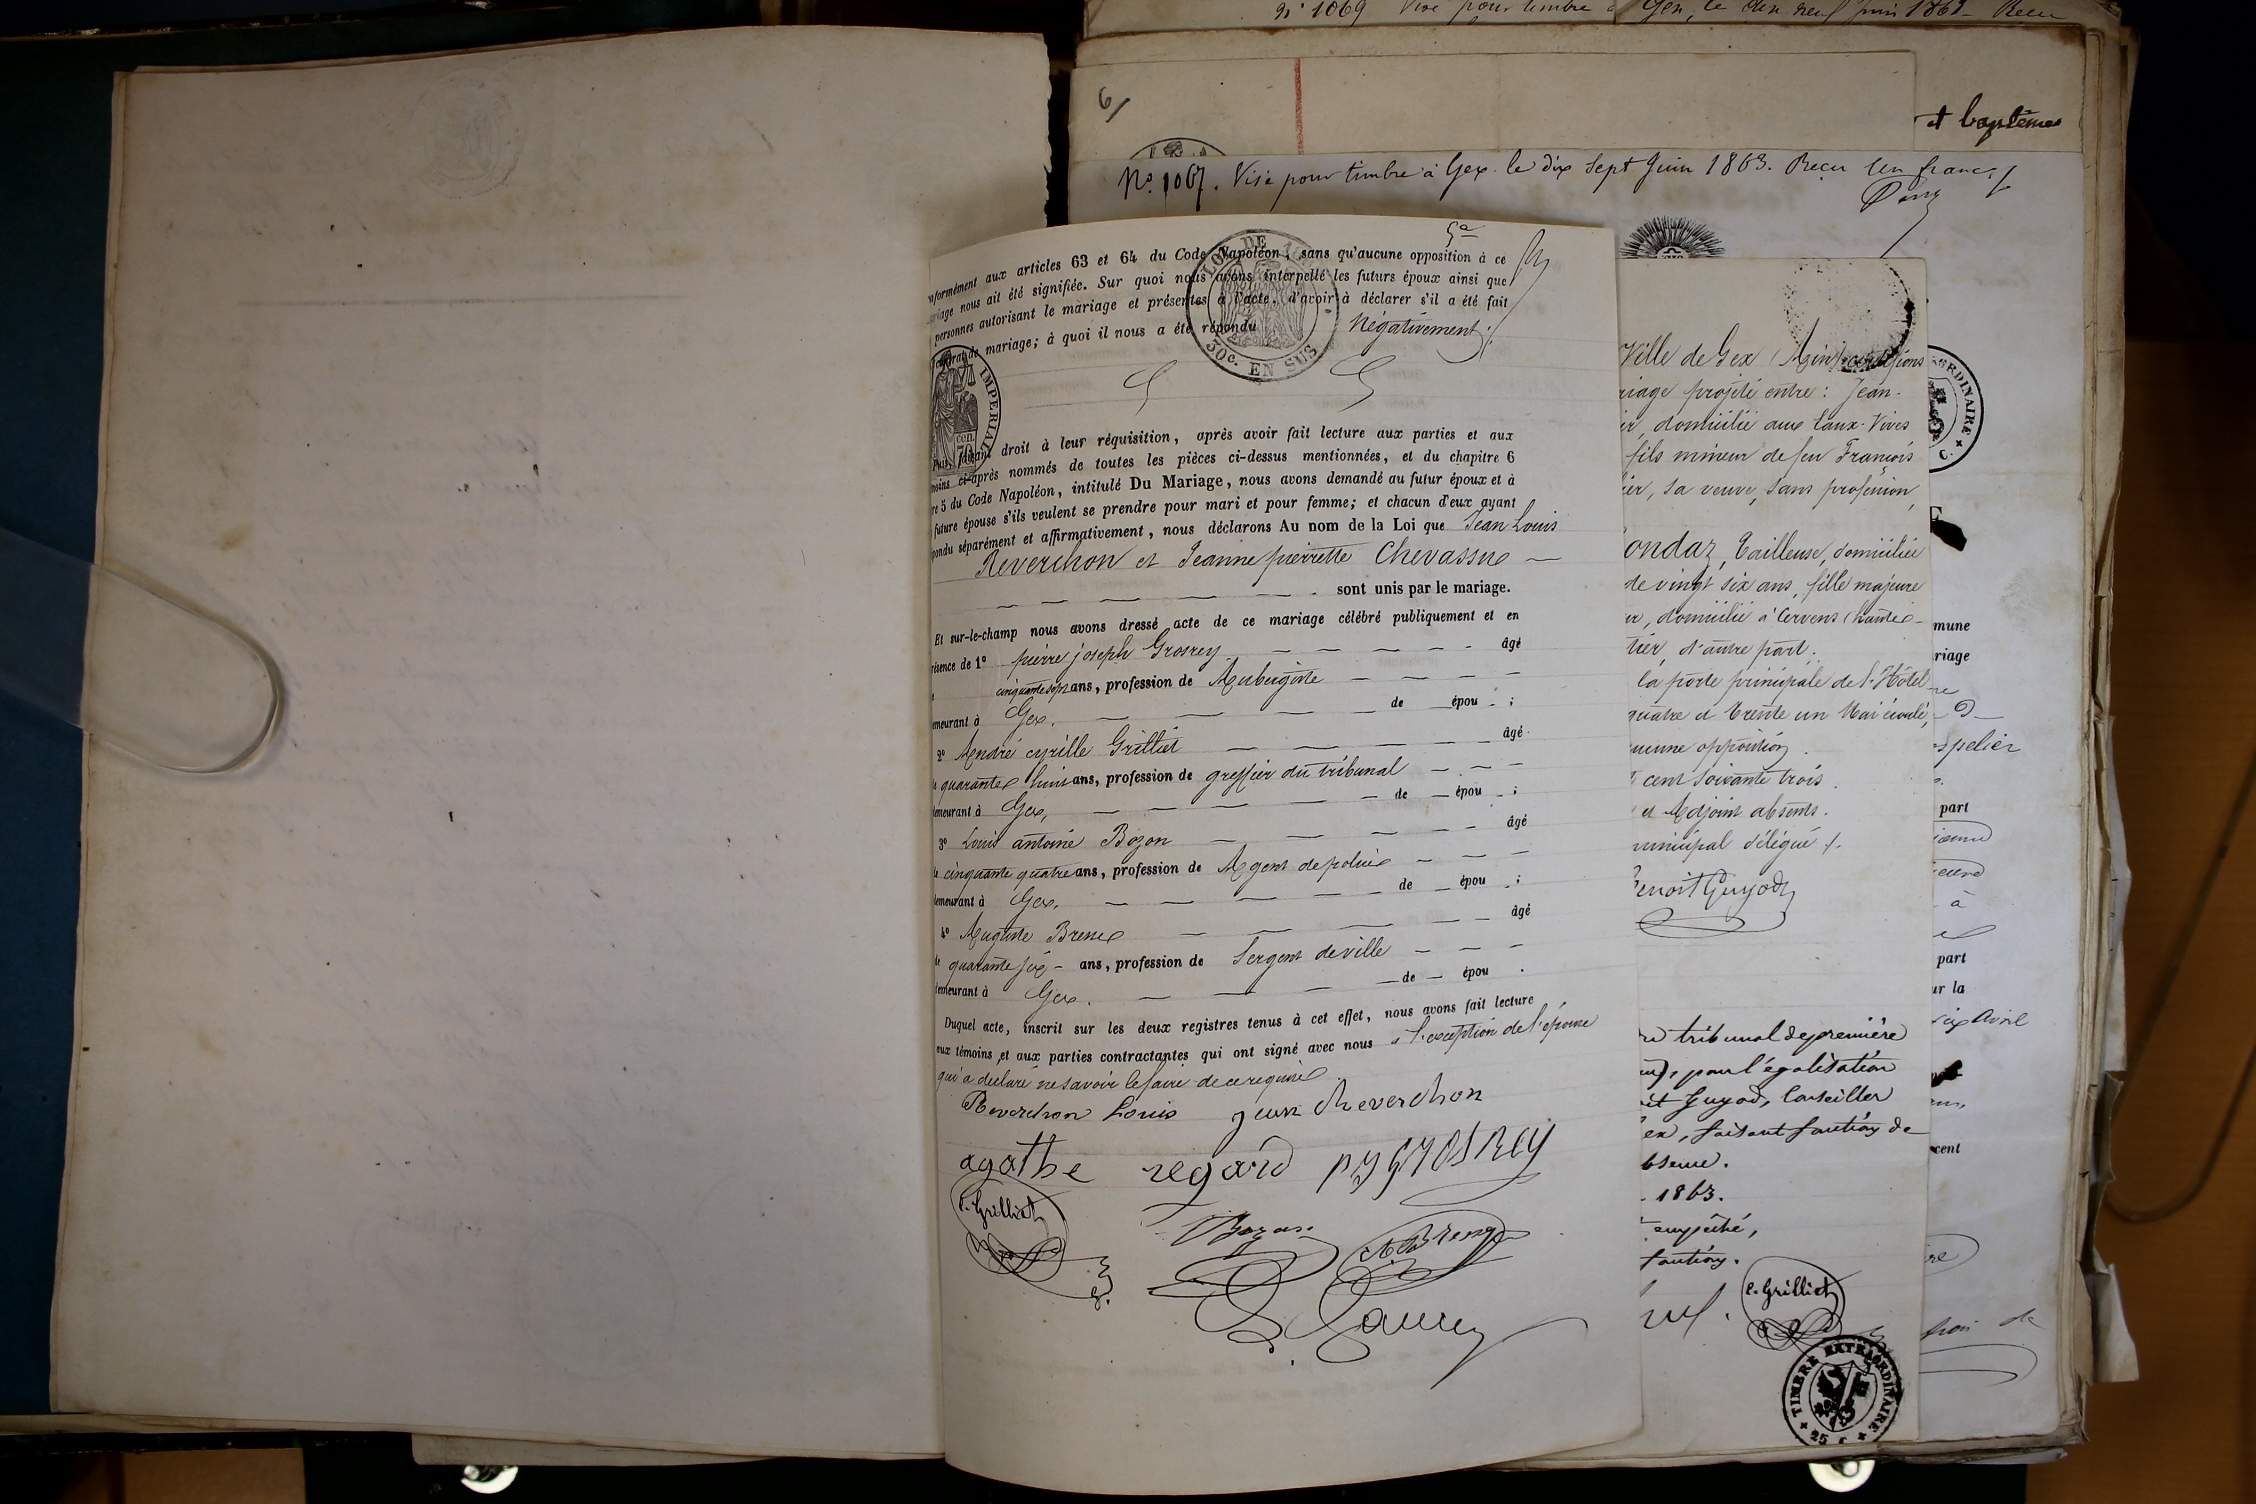 n° 1069 Visé pour timbre à Gex, le dix neuf juin 1863 - Recu
6/
et baptêmes
N° 1067. Visé pour timbre à Gex le dix sept Juin 1863. Reçu un franc.
nformément aux articles 63 et 64 du Code Napoléon, sans qu'aucune opposition à ce
riage nous ait été signifiée. Sur quoi nous avons interpellé les futurs époux ainsi que
personnes autorisant le mariage et présentes à l'acte, d'avoir à déclarer s'il a été fait
contrat de mariage; à quoi il nous a été répondu Négativement.
LOI DE
30c. EN SUS
IMPERIAL
Puis, faisant droit à leur réquisition, après avoir fait lecture aux parties et aux
moins ci-après nommés de toutes les pièces ci-dessus mentionnées, et du chapitre 6
re 5 du Code Napoléon, intitulé Du Mariage, nous avons demandé au futur époux et à
future épouse s'ils veulent se prendre pour mari et pour femme; et chacun d'eux ayant
pondu séparément et affirmativement, nous déclarons Au nom de la Loi que Jean Louis
Reverchon et Jeanne pierrette Chevassus
sont unis par le mariage.
Et sur-le-champ nous avons dressé acte de ce mariage célébré publiquement et en
résence de 1° pierre joseph Grosrey âgé
cinquante sept ans, profession de Aubergiste
emeurant à Gex. de épou ;
2° André cyrille Grilliet âgé
quarante huit ans, profession de greffier du tribunal
demeurant à Gex, de épou ;
3° Louis antoine Bozon âgé
de cinquante quatre ans, profession de Agent de police
demeurant à Gex. de épou ;
4° Auguste Brene âgé
de quarante six ans, profession de Sergent de ville
demeurant à Gex. de épou .
Duquel acte, inscrit sur les deux registres tenus à cet effet, nous avons fait lecture
aux témoins et aux parties contractantes qui ont signé avec nous à l'exception de l'épouse
qui a déclaré ne savoir le faire de ce requise
Reverchon Louis jean Reverchon
agathe regard pj grosrey
C. Grilliet Bozon A Brene
Ville de Gex (Ain)
riage projeté entre : Jean-
er, domicilié aux Eaux-Vives
fils mineur de feu François
ier, sa veuve, sans profession,
ondaz, Tailleuse, domiciliée
de vingt six ans, fille majeure
ur, domicilié à Cervens (haute-
tier, d'autre part.
la porte principale de l'Hôtel
quatre et trente un Mai écoulé,
ucune opposition.
t cent soixante trois.
et Adjoint absents.
municipal délégué /.
Benoit Guyod
du tribunal de première
pour légalisation
it Guyod, Conseiller
ex, faisant fonction de
bsence.
1863.
empêché,
fonction.
C. Grilliet
TIMBRE EXTRAORDINAIRE
25 C
ORDINAIRE
mune
riage
spelier
part
à
part
ur la
six Avril
cent
de